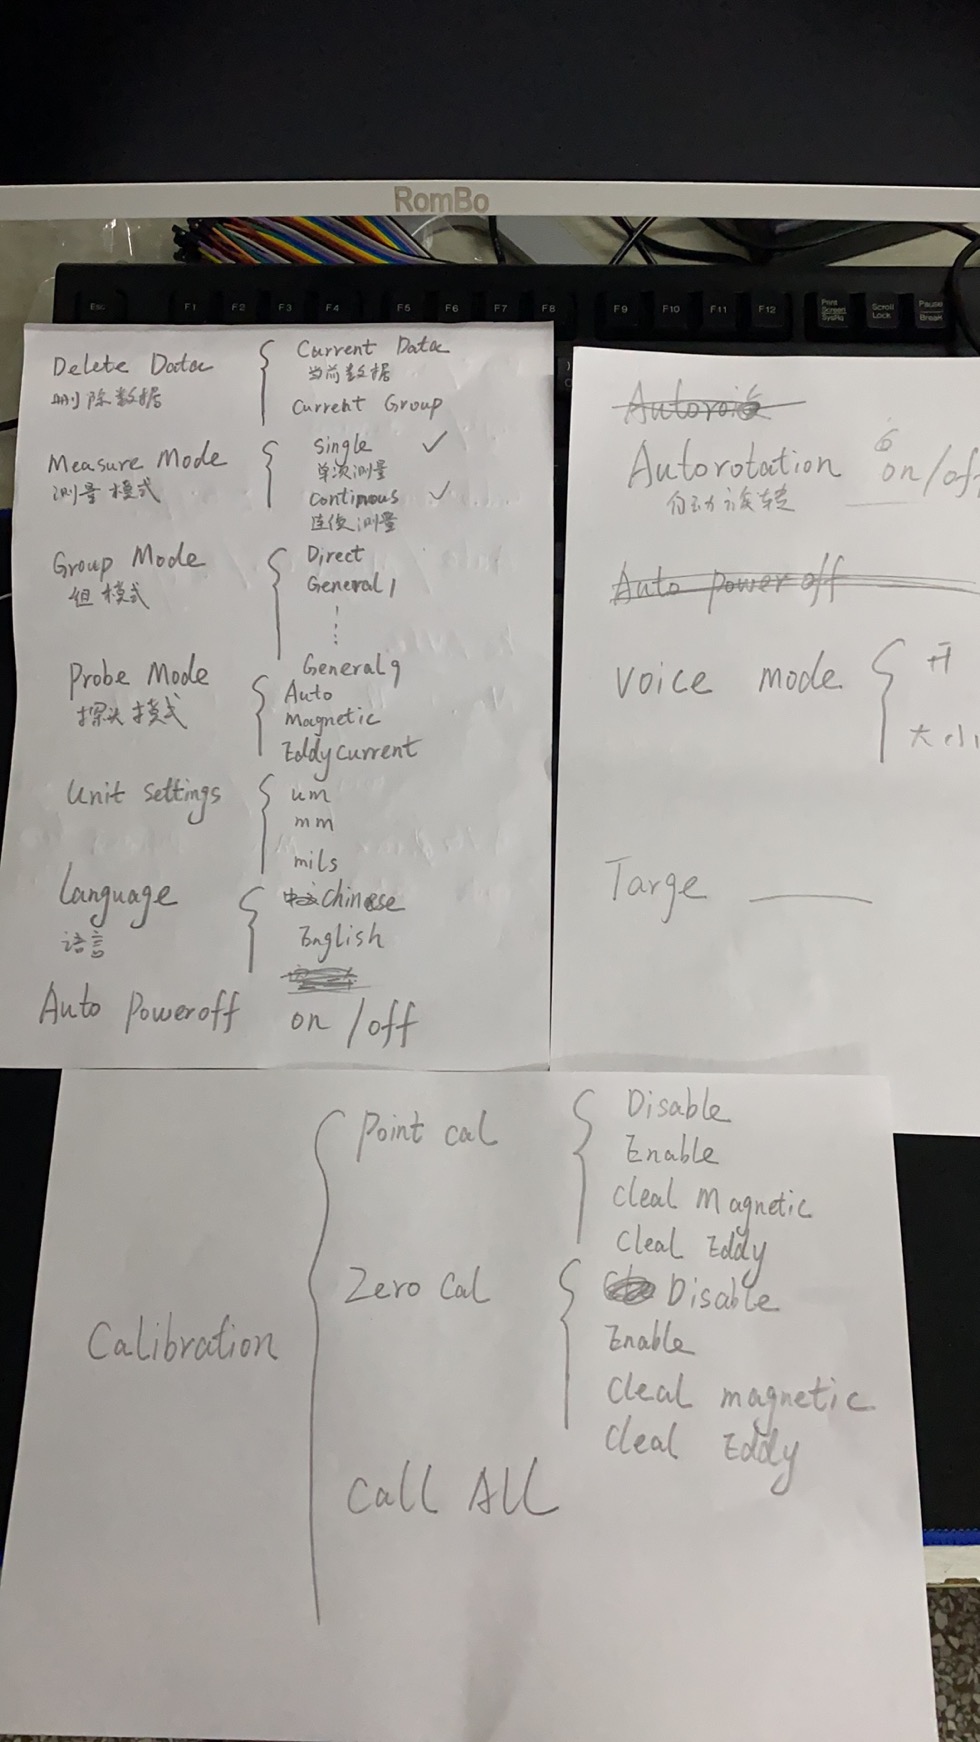 RomBo
Esc F1 F2 F3 F4 F5 F6 F7 F8 F9 F10 F11 F12 Print Screen SysRq Scroll Lock Pause Break
Delete Data
删除数据
Current Data
当前数据
Current Group
Measure Mode
测量模式
Single ✓
单次测量
Continous ✓
连续测量
Group Mode
组模式
Direct
General 1
⋮
General 9
Probe Mode
探头模式
Auto
Magnetic
Eddy current
Unit Settings
um
mm
mils
Language
语言
中文 Chinese
English
Auto Poweroff on / off
Autorotation on / off
自动旋转
Auto power off
Voice mode
开
大小
Targe
Calibration
Point cal
Disable
Enable
Cleal Magnetic
Cleal Eddy
Zero Cal
Disable
Enable
Cleal magnetic
Cleal Eddy
Call ALL